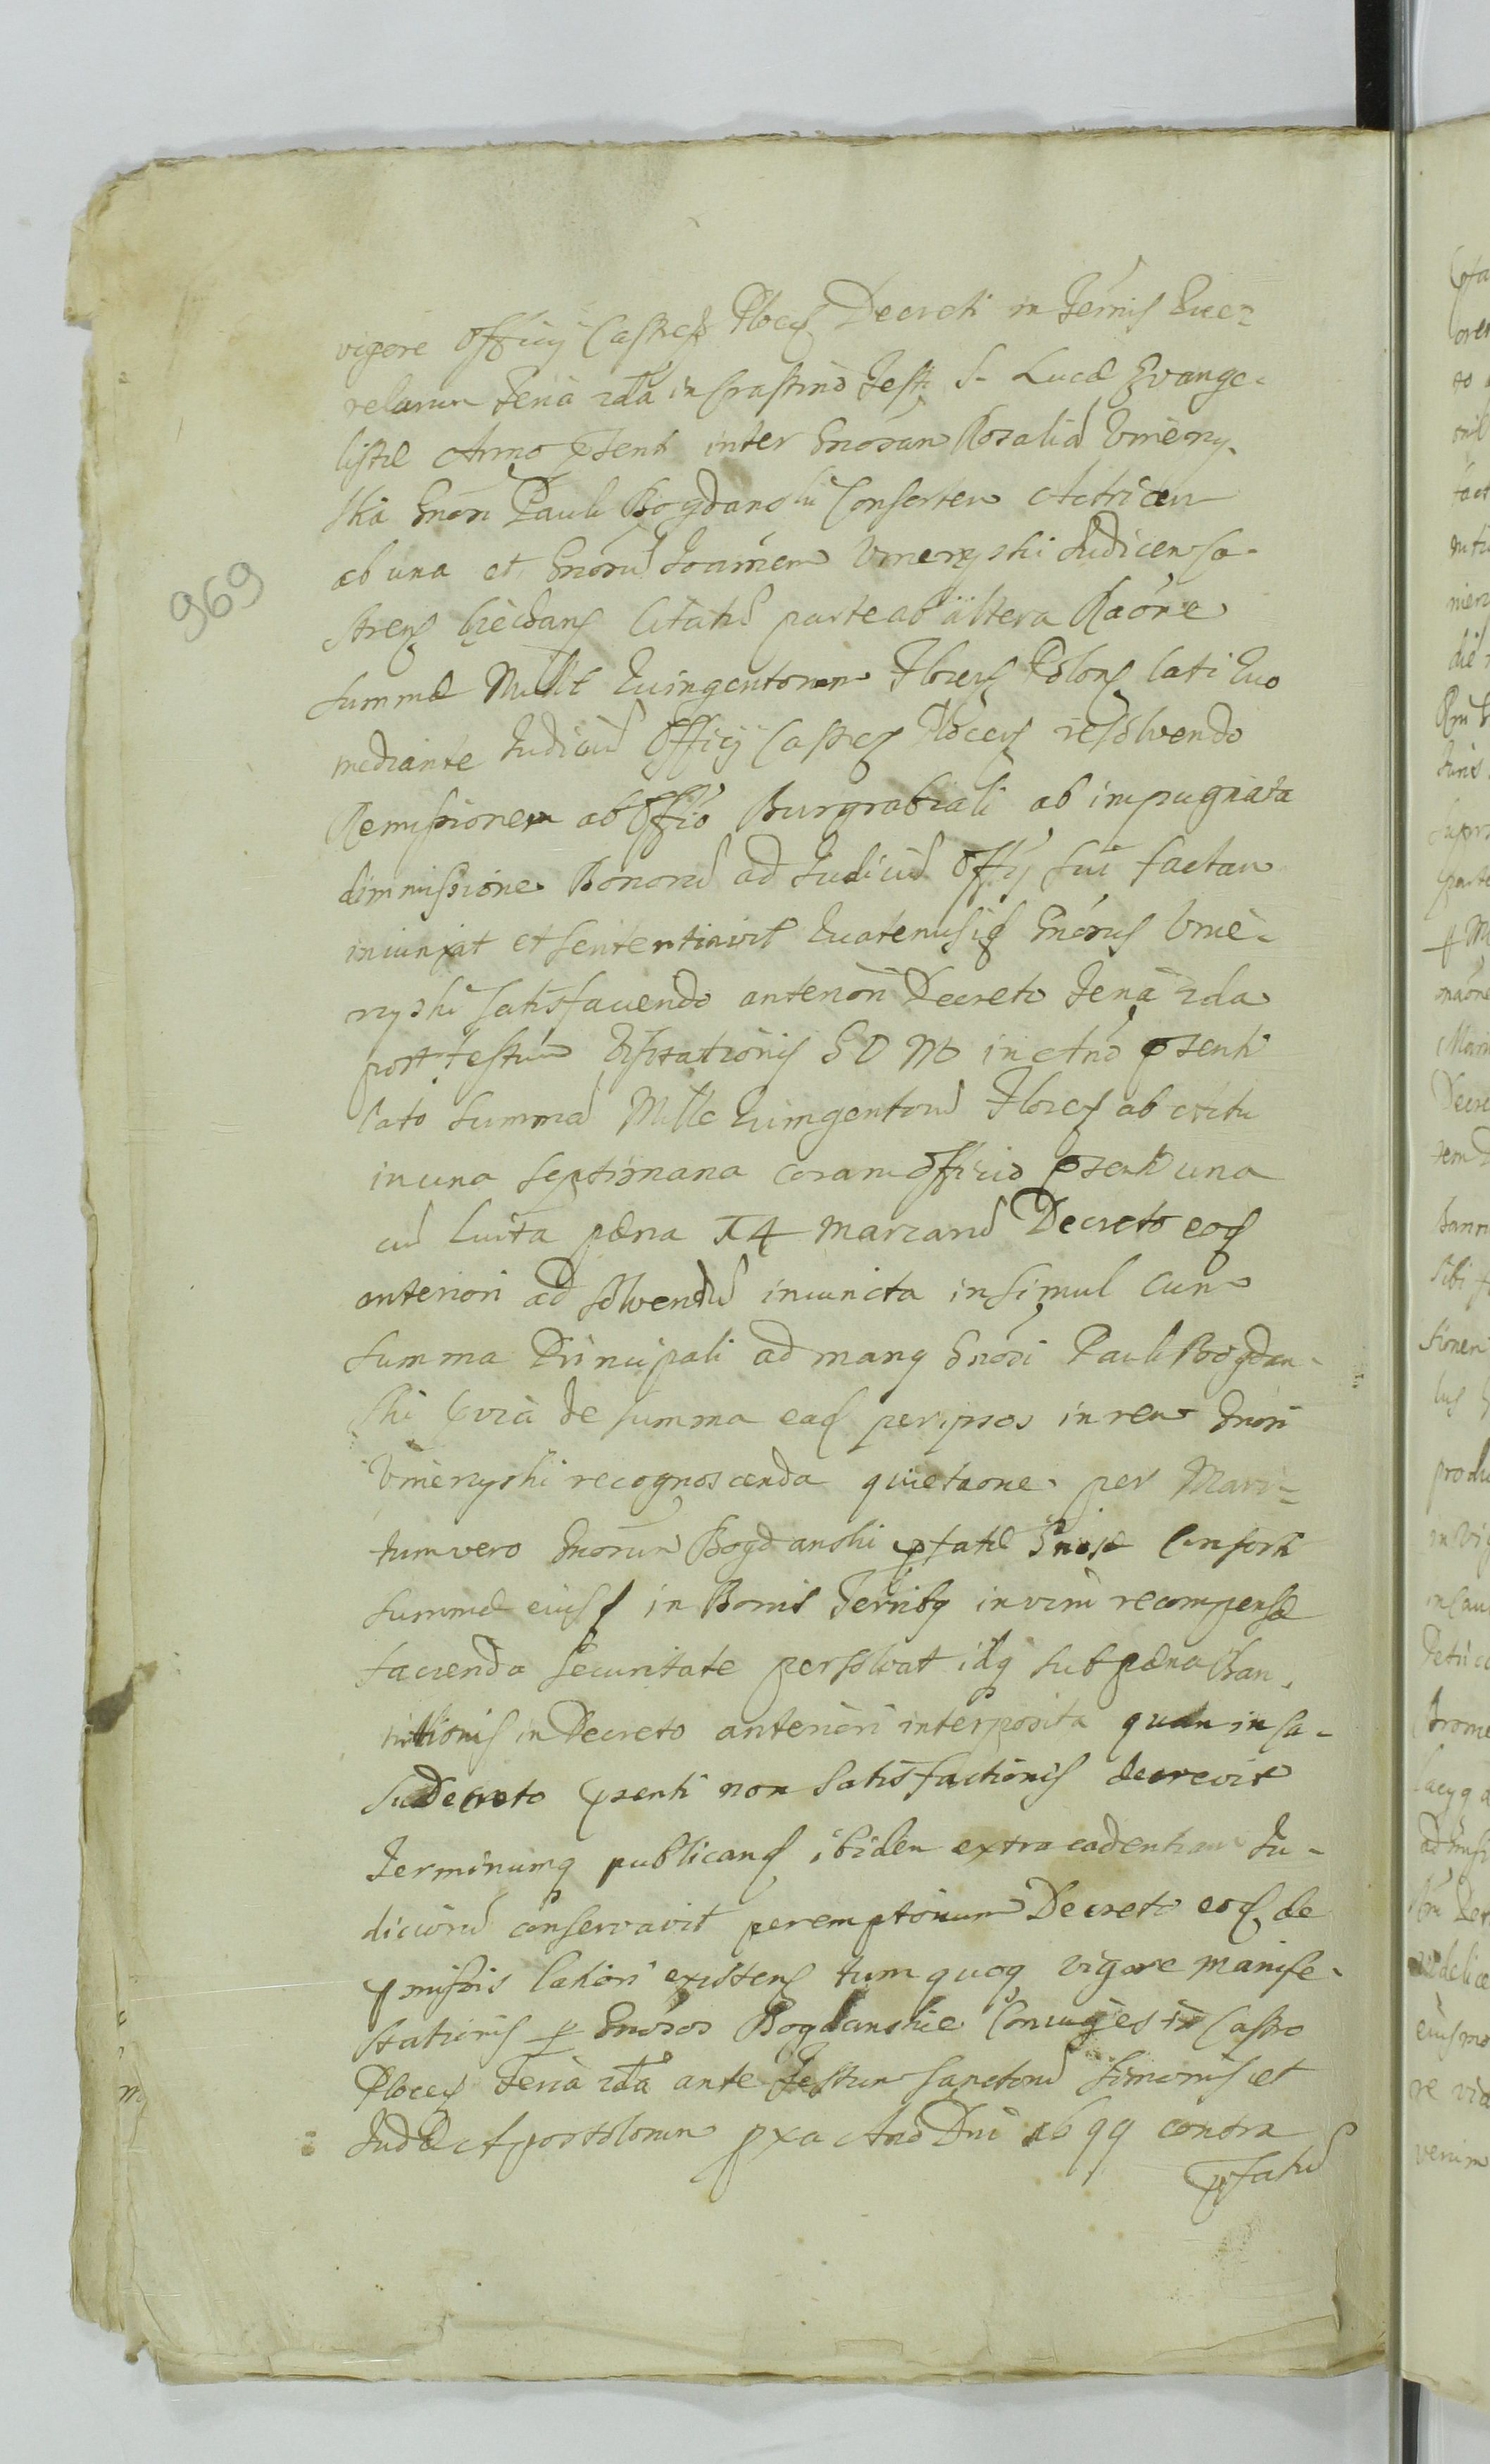 vigore Officij Castreñ Ploceñ Decreti in Terńis Que-
relarum Feria 2da in Crastino Festi S. Lucæ Evange-
listæ Anno pſenti inter Gnosam Rosaliã Vmieny-
ska Gnosi Pauli Bogdanski Consortem Actricem
ab una et Gnosũ Joannem Vmienyski Judicem Ca-
streñ Ciechanẽ Citatũ parte ab altera Raõne
summæ Mille Quingentorum Floreñ Polonẽ lati Quo
mediante Judiciũ Officij Castreñ Ploceñ resolvendo
Remissionem ab Offio Burgrabiali ab impugnata
dimmissione Bonorũ ad Judiciũ Offij sui factam
iniunxit et sententiavit Quatenus idq Gnosus Vmie-
nyski satisfaciendo anteriori Decreto Feria 2da
post Festum Visitationis B V M in Ano pſenti
lato summã Mille Quingentorũ Floreñ ab Actu
in una septimana coram Officio pſenti una
cũ luita pæna 14 marcarũ Decreto eoq
anteriori ad solvendũ iniuncta insimul cum
summa Principali ad manq Gnosi Pauli Bogdan-
ski pvia de summa eaq per ipsos in rem Gnosi
Vmienyski recognoscenda quietaone per Mari-
tum vero Gnosum Bogdanski pfatæ Gnosæ Consorti
summæ eiusq in Bonis Terribq in vim recompensæ
facienda securitate persolvat idq sub pæna Ban-
nitionis in Decreto anteriori interposita quam in ca-
su Decreto pſenti non satisfactionis decrevit
Terminumq publicanđ ibidem extra cadentiam Ju-
diciorũ conservavit peremptorium Decreto eoq de
pmissis latiori existenẽ tum quoq vigore manife-
stationis p Gnosos Bogdanskie Coniuges in Castro
Ploceñ Feria 2da ante Festum Sanctorũ Simonis et
Judæ Apostolorum pxa Ano Dni 1699 contra
pfatũ
969